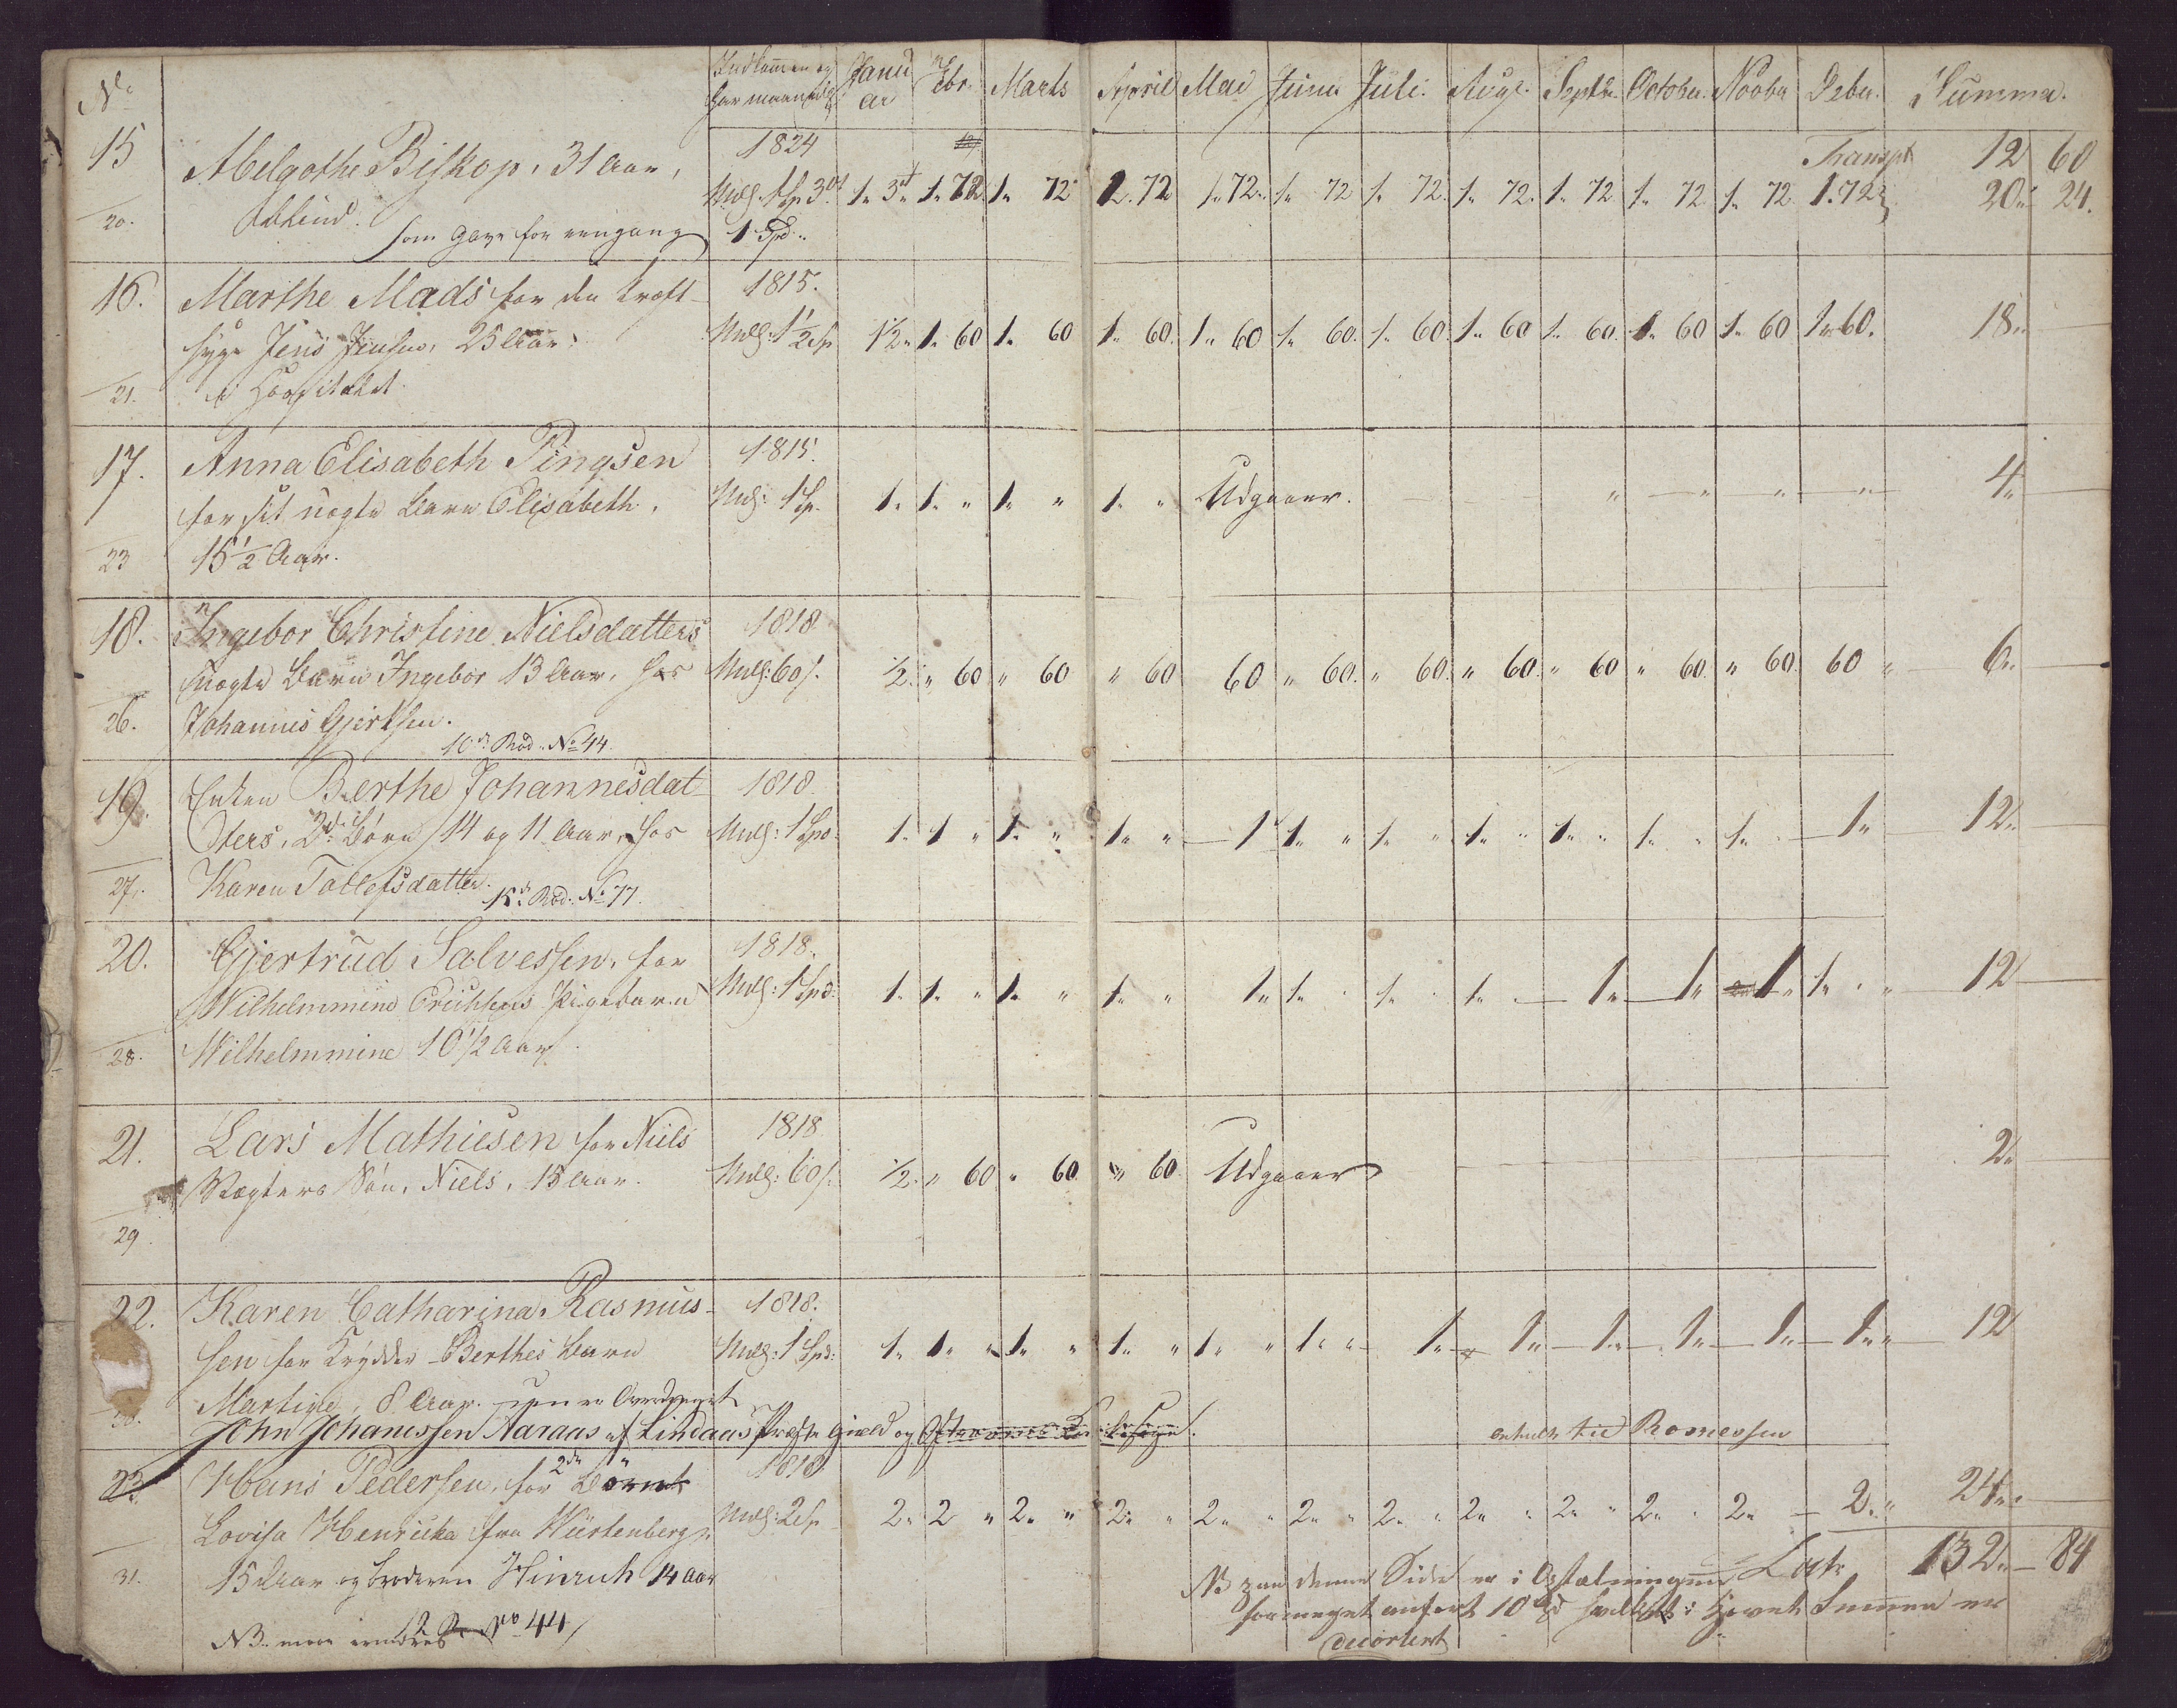 No. Indkommen og har maanedl. Januar Febr. Marts April Mai Junii Juli. Aug. Septbr. October. Novbr Debr. Summa.
Transpt 12 60
15 Abelgothe Biskop, 31 Aar, 1824
Mulg. 1 Sp 3 ort 1„ 3 ort 1„ 72. 1„ 72 1. 72 1„ 72„ 1„ 72 1„ 72. 1„ 72. 1„ 72 1„ 72 1„ 72 1. 72 20„ 24.
20. Som Gave for eengang 1 Spd„
16. Marthe Mads for den kræft- 1815.
syge Jens Jensen, 25 Aar, Mulg: 1½ Sp 1½„ 1„ 60 1„ 60 1„ 60. 1„ 60 1„ 60. 1„ 60. 1„ 60 1„ 60. 1„ 60 1„ 60 1„ 60. 18„
21. i Hospitalet
17. Anna Elisabeth Pingsen 1815.
for sit uægte Barn Elisabeth, Mulg: 1 Sp. 1„ 1„ „ 1„ „ 1„ „ Udgaaer. „ „ „ „ 4„
23 15½ Aar.
18. Ingebor Christine Nielsdatters 1818
uægte Barn Ingebor 13 Aar, hos Mulg: 60 s. ½„ „ 60 „ 60 „ 60 60 „ 60. „ 60. „ 60. „ 60 „ 60. „ 60. 60 „ 6„
26. Johannes Gjertsen.
10de Rod. No 44.
19. Enken Berthe Johannesdat- 1818.
ters, 2de Børn 14 og 11 Aar, hos Mulg: 1 Spd: 1„ 1 „ 1„ „ 1„ „ 1„ 1„ „ 1„ „ 1„ „ 1„ „ 1„ „ 1„ „ 1„ 12„
27. Karen Tollefsdatter.
15de Rod. No 77.
20. Gjertrud Salvessen, for 1818.
Wilhelmmine Erichsens Pigebarn Mulg: 1 Spd: 1„ 1„ „ 1„ „ 1„ „ 1„ 1„ „ 1„ „ 1„ 1„ 1„ 1„ 1„ „ 12
28. Wilhelmmine 10½ Aar.
21. Lars Mathiesen for Niels 1818
Vægters Søn, Niels, 15 Aar. Mulg: 60 s. ½„ „ 60 „ 60 „ 60 Udgaaer 2„
29.
22. Karen Catharina Rasmus- 1818.
sen for Krydder Berthes Barn Mulg: 1 Spd: 1„ 1„ „ 1„ „ 1„ „ 1„ „ 1„ „ 1„ 1„ 1„ 1„ 1„ 1„ „ 12
Martine, 8 Aar.
John Johanessen Aaraas af Lindaas Præste Gield og
23. Hans Pedersen, for 2de Børn 1818
Lovisa Henricka fra Würtenberg Mulg: 2 Sp 2„ 2 „ 2„ „ 2„ „ 2„ „ 2„ „ 2„ „ 2„ „ 2„ „ 2„ „ 2„ 2„ „ 24„
31. 15 Aar og broderen Hinrich 14 Aar
Lat. 132„ 84
NB paa denne Side er i Optælningen
formeget anført 10 Spd hvilket i Hovet Summen er
decorteret
NB. No 44